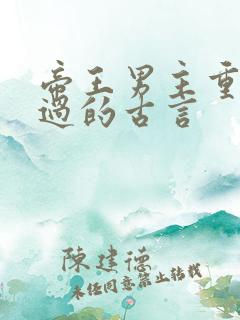 帝王男主重
過的古言
陳建德
未经同意禁止转载